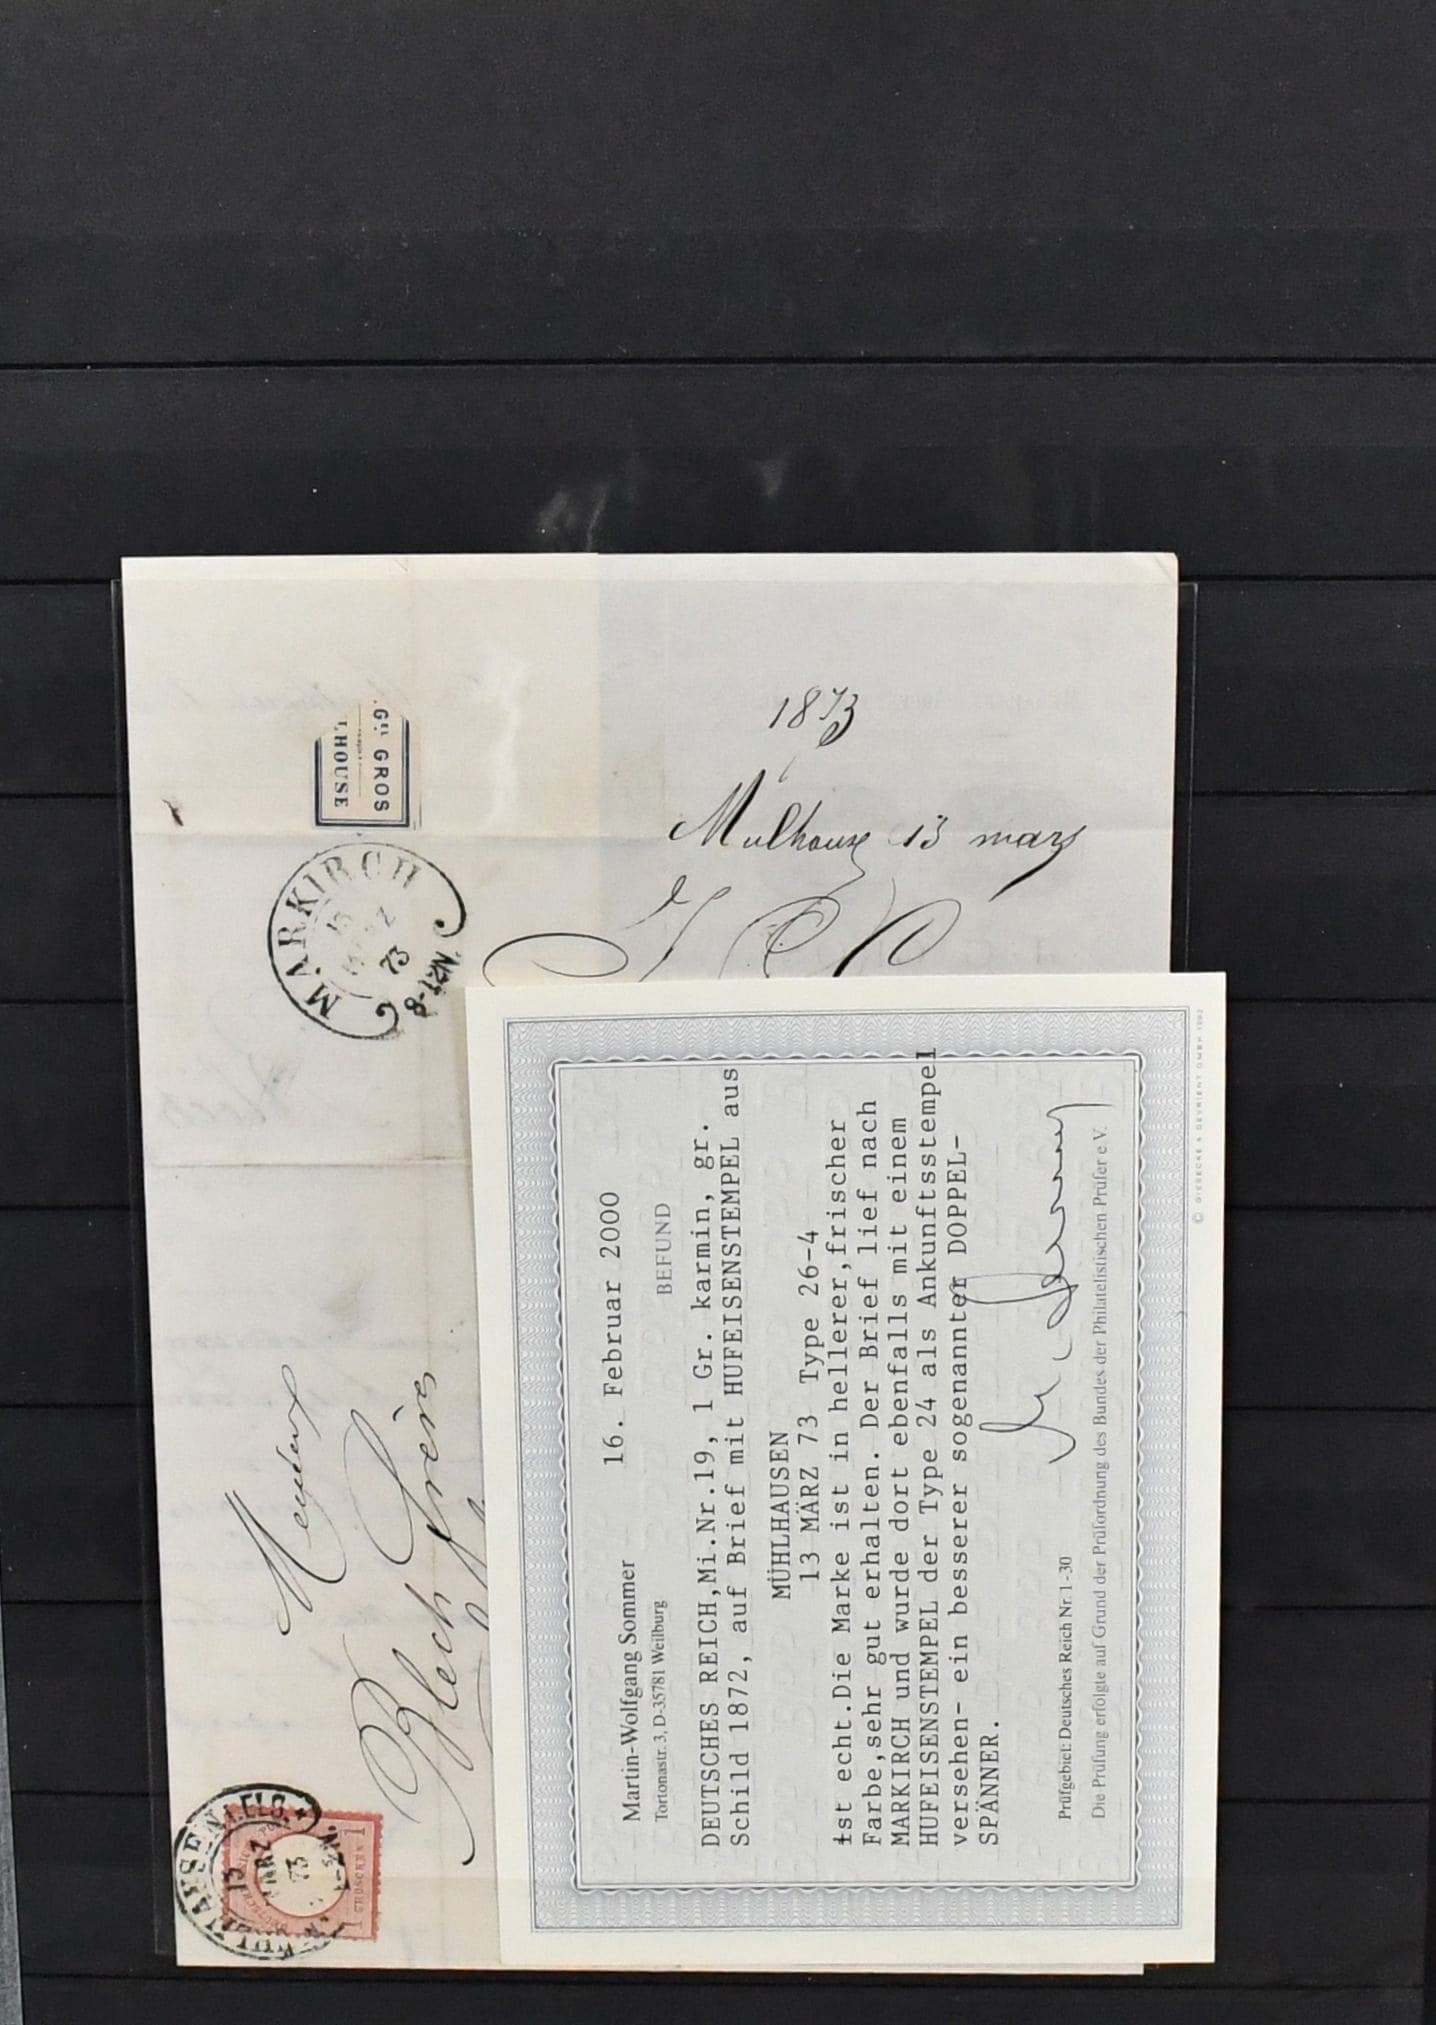 .G^ve GROS
LHOUSE
MARKIRCH
73
N2T-8
1873
Mulhouse 13 mars
Messieurs
Blech Frères
MÜLHAUSEN I. ELS.
13
MÄRZ
73
1 GROSCHEN 1
Martin-Wolfgang Sommer
Tortonastr. 3, D-35781 Weilburg
16. Februar 2000
BEFUND
DEUTSCHES REICH,Mi.Nr.19, 1 Gr. karmin, gr.
Schild 1872, auf Brief mit HUFEISENSTEMPEL aus
MÜHLHAUSEN
13 MÄRZ 73 Type 26-4
ist echt.Die Marke ist in hellerer,frischer
Farbe,sehr gut erhalten. Der Brief lief nach
MARKIRCH und wurde dort ebenfalls mit einem
HUFEISENSTEMPEL der Type 24 als Ankunftsstempel
versehen- ein besserer sogenannter DOPPEL-
SPÄNNER.
Prüfgebiet: Deutsches Reich Nr. 1-30
Die Prüfung erfolgte auf Grund der Prüfordnung des Bundes der Philatelistischen Prüfer e.V.
© GIESECKE & DEVRIENT GMBH 1992